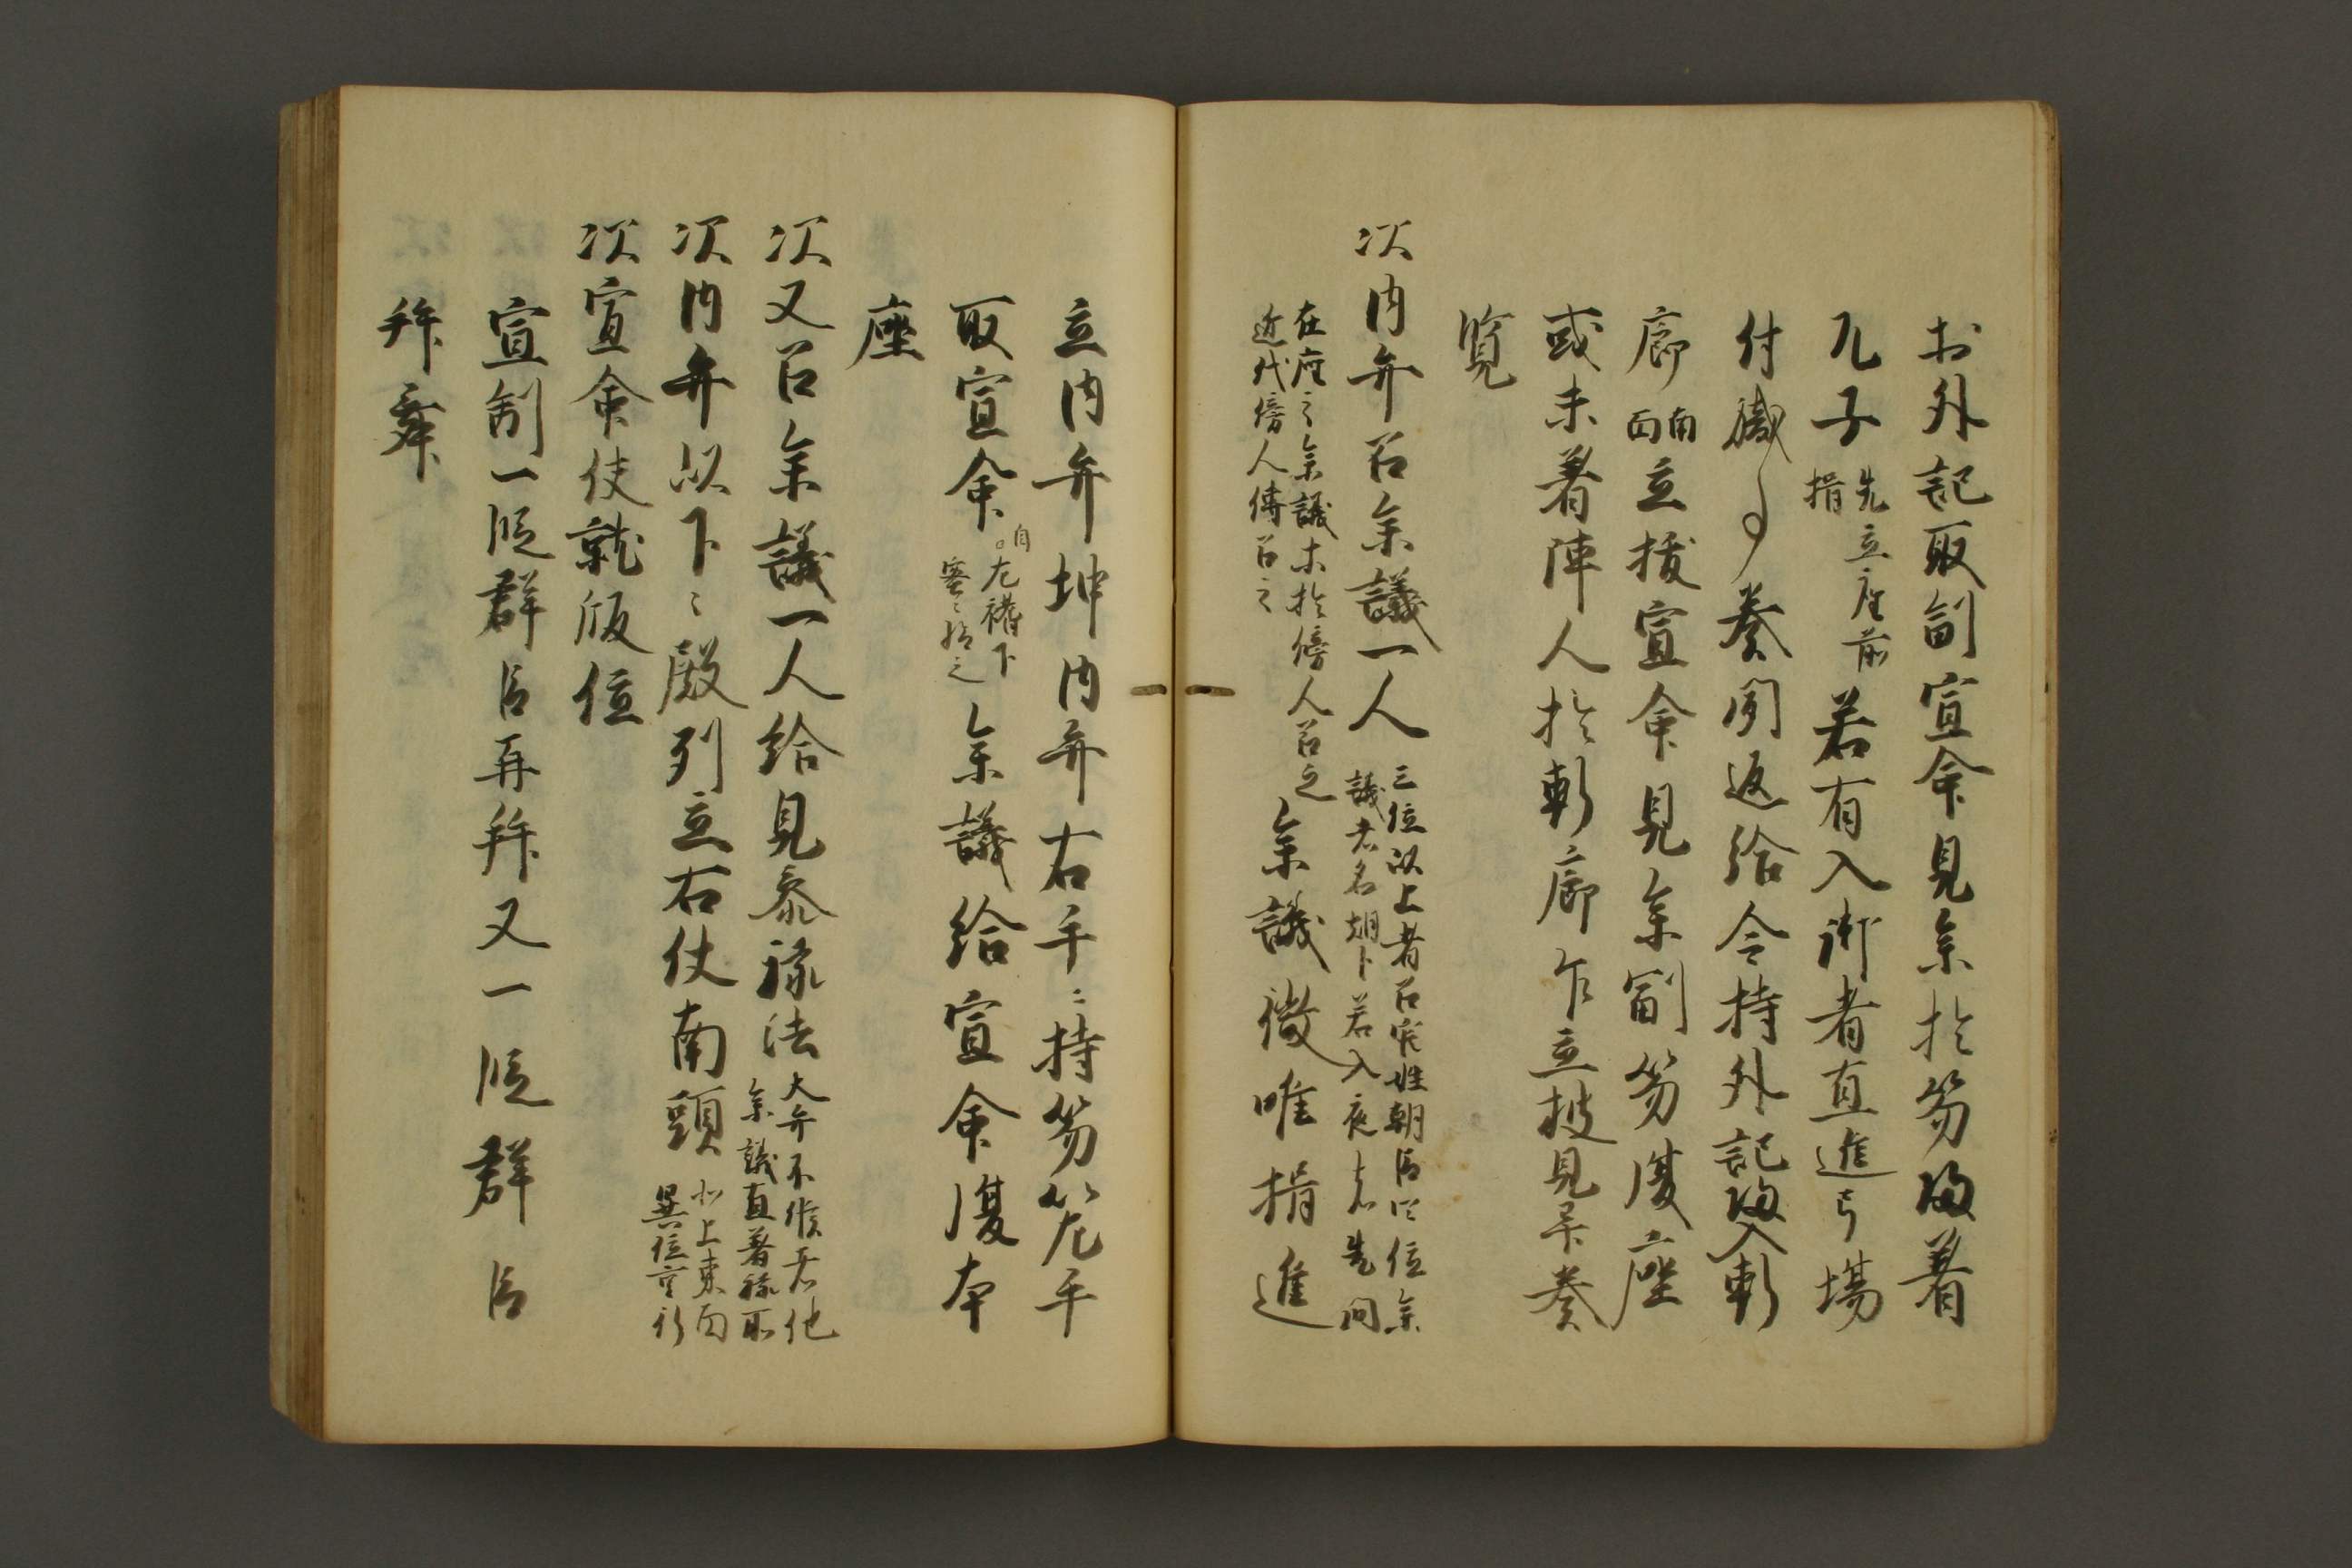 於外記取副宣命見参於笏帰着
兀子先立座前揖若有入御者直進弓場
付職事奏聞返給令持外記帰入軒
廊南面立披宣命見参副笏復座
或未着陣人於軒廊乍立披見畢奏
覧
次内弁召参議一人三位以上者召官姓朝臣四位参議者名朝臣若入夜者先問
在座之参議未於傍人召之近代傍人傳召之参議微唯揖進
立内弁坤内弁右手ニ持笏左手
取宣命自左襠下密々指之参議給宣命復本
座
次又召参議一人給見参禄法大弁不候者他参議直着禄所
次内弁以下々殿列立右仗南頭北上東面異位重行
次宣命使就版位
宣制一段群臣再拜又一段群臣
拜舞